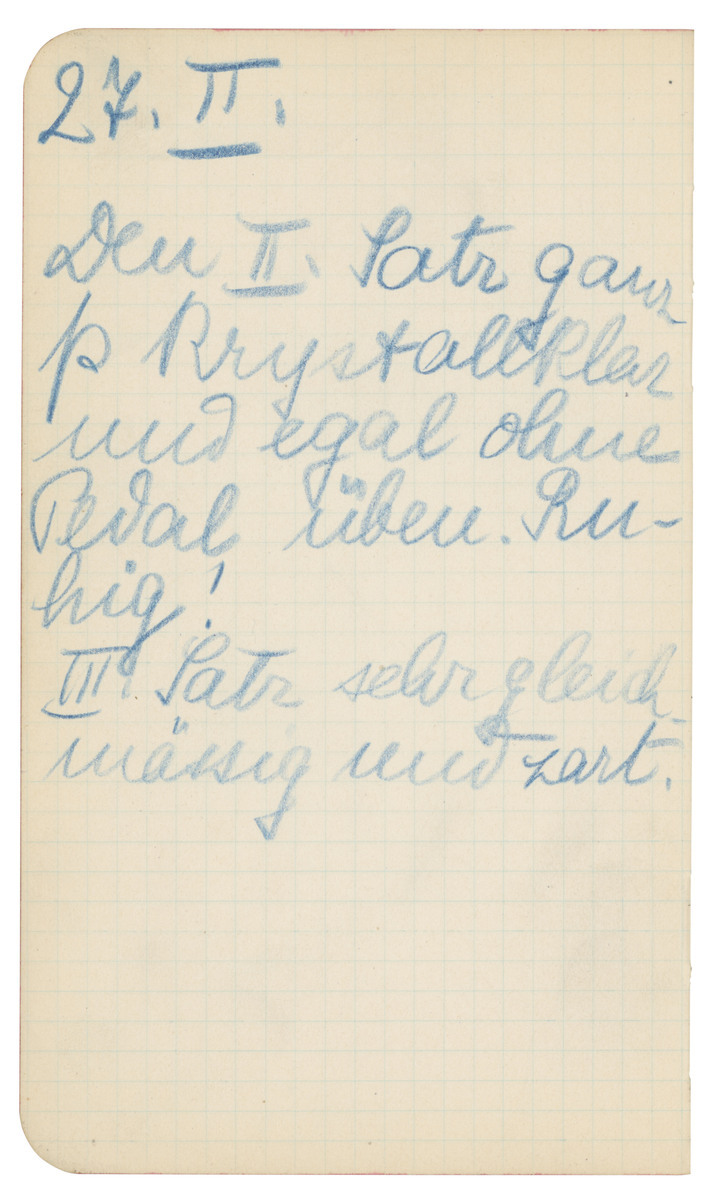 27. II.
Den II. Satz ganz
p krystallklar
und egal ohne
Pedal üben. Ru-
hig!
III. Satz sehr gleich-
mässig und zart.